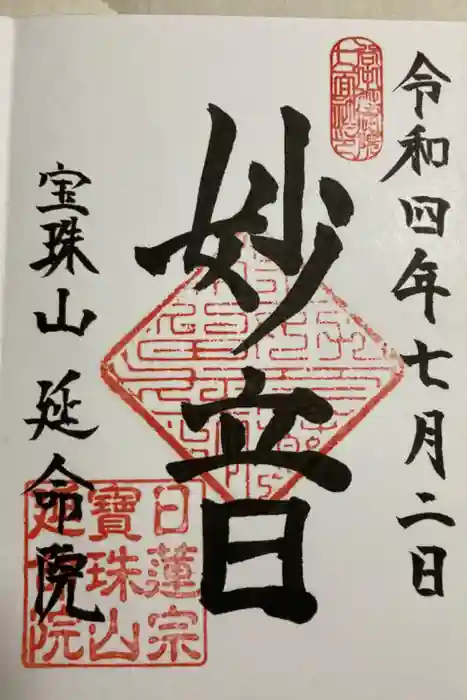 令和四年七月二日
妙音
宝珠山 延命院
日蓮宗
寶珠山
延命院